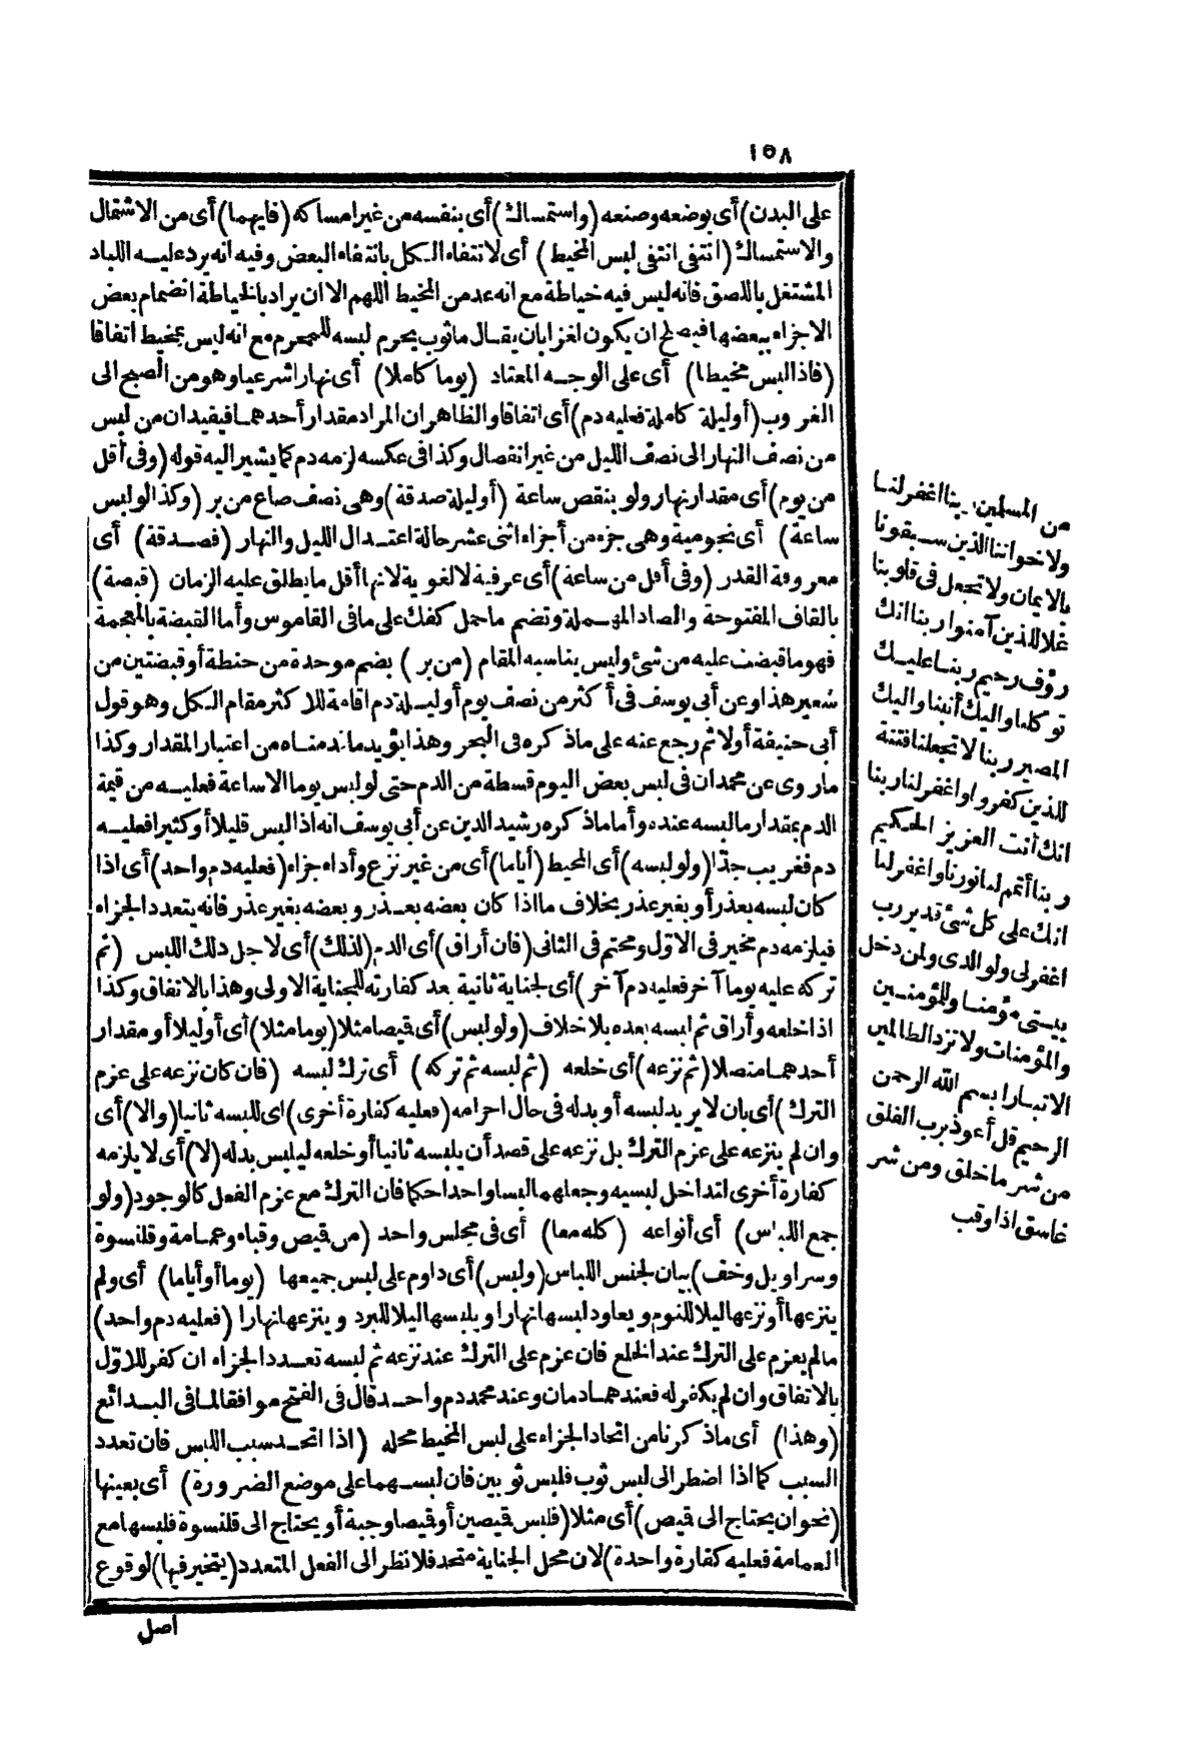 ١٥٨
على البدن) أى بوضعه وصنعه (واستمساك) أى بنفسه من غير امساكه (فايهما) أى من الاشتمال
والاستمساك (انتفى انتفى لبس المخيط) أى لانتفاء الكل بانتفاء البعض وفيه انه يرد عليه اللباد
المشتغل باللصق فانه ليس فيه خياطة مع انه عد من المخيط اللهم الا ان يراد بالخياطة انضمام بعض
الاجزاء ببعضها فيصلح ان يكون لغزا بان يقال ما ثوب يحرم لبسه للمحرم مع انه ليس بمخيط اتفاقا
(فاذا لبس مخيطا) أى على الوجه المعتاد (يوما كاملا) أى نهارا شرعيا وهو من الصبح الى
الغروب (أوليلة كاملة فعليه دم) أى اتفاقا والظاهر ان المراد مقدار أحدهما فيفيد ان من لبس
من نصف النهار الى نصف الليل من غير انفصال وكذا فى عكسه لزمه دم كما يشير اليه قوله (وفى أقل
من يوم) أى مقدار نهار ولو بنقص ساعة (أوليلة صدقة) وهى نصف صاع من بر (وكذا لو لبس
ساعة) أى نجومية وهى جزء من أجزاء اثنى عشر حالة اعتدال الليل والنهار (فصدقة) أى
معروفة القدر (وفى أقل من ساعة) أى عرفية لا لغوية لانها أقل ما يطلق عليه الزمان (قبصة)
بالقاف المفتوحة والصاد المهملة وتضم ما حمل كفك على ما فى القاموس وأما القبضة بالمعجمة
فهو ما قبضت عليه من شئ وليس يناسبه المقام (من بر) بضم موحدة من حنطة أو قبضتين من
شعير هذا وعن أبى يوسف فى أكثر من نصف يوم أو ليلة دم اقامة للاكثر مقام الكل وهو قول
أبى حنيفة أولا ثم رجع عنه على ما ذكره فى البحر وهذا يؤيد ما قدمناه من اعتبار المقدار وكذا
ما روى عن محمد ان فى لبس بعض اليوم قسطه من الدم حتى لو لبس يوما الا ساعة فعليه من قيمة
الدم بمقدار ما لبسه عنده وأما ما ذكره رشيد الدين عن أبى يوسف انه اذا لبس قليلا أو كثيرا فعليه
دم فغريب جدّا (ولو لبسه) أى المخيط (أياما) أى من غير نزع وأداء جزاء (فعليه دم واحد) أى اذا
كان لبسه بعذر أو بغير عذر بخلاف ما اذا كان بعضه بعذر وبعضه بغير عذر فانه يتعدد الجزاء
فيلزمه دم مخير فى الاوّل ومحتم فى الثانى (فان أراق) أى الدم (لذلك) أى لاجل ذلك اللبس (ثم
تركه عليه يوما آخر فعليه دم آخر) أى لجناية ثانية بعد كفارته للجناية الاولى وهذا بالاتفاق وكذا
اذا خلعه وأراق ثم لبسه بعده بلا خلاف (ولو لبس) أى قميصا مثلا (يوما مثلا) أى أو ليلا أو مقدار
أحدهما متصلا (ثم نزعه) أى خلعه (ثم لبسه ثم تركه) أى ترك لبسه (فان كان نزعه على عزم
الترك) أى بان لا يريد لبسه أو بدله فى حال احرامه (فعليه كفارة أخرى) اى للبسه ثانيا (والا) أى
وان لم ينزعه على عزم الترك بل نزعه على قصد أن يلبسه ثانيا أو خلعه ليلبس بدله (لا) أى لا يلزمه
كفارة أخرى لتداخل لبسيه وجعلهما لبسا واحدا حكما فان الترك مع عزم الفعل كالوجود (ولو
جمع اللباس) أى أنواعه (كله معا) أى فى مجلس واحد (من قميص وقباء وعمامة وقلنسوة
وسراويل وخف) بيان لجنس اللباس (ولبس) أى داوم على لبس جميعها (يوما أو أياما) أى ولم
ينزعها أو نزعها ليلا للنوم ويعاود لبسها نهارا ويلبسها ليلا للبرد وينزعها نهارا (فعليه دم واحد)
مالم يعزم على الترك عند الخلع فان عزم على الترك عند نزعه ثم لبسه تعدد الجزاء ان كفر للاوّل
بالاتفاق وان لم يكفر له فعندهما دمان وعند محمد دم واحد قال فى الفتح موافقا لما فى البدائع
(وهذا) أى ما ذكرنا من اتحاد الجزاء على لبس المخيط محله (اذا اتحد سبب اللبس فان تعدد
السبب كما اذا اضطر الى لبس ثوب فلبس ثوبين فان لبسهما على موضع الضرورة) أى بعينها
(نحو ان يحتاج الى قميص) أى مثلا (فلبس قميصين أو قميصا وجبة أو يحتاج الى قلنسوة فلبسها مع
العمامة فعليه كفارة واحدة) لان محل الجناية متحد فلا نظر الى الفعل المتعدد (يتخير فيها) لوقوع
اصل
من المسلمين ربنا اغفر لنا
ولاخواننا الذين سبقونا
بالايمان ولا تجعل فى قلوبنا
غلا للذين آمنوا ربنا انك
رؤف رحيم ربنا عليك
توكلنا واليك أنبنا واليك
المصير ربنا لا تجعلنا فتنة
للذين كفروا واغفر لنا ربنا
انك أنت العزيز الحكيم
ربنا أتمم لنا نورنا واغفر لنا
انك على كل شئ قدير رب
اغفر لى ولوالدى ولمن دخل
بيتى مؤمنا وللمؤمنين
والمؤمنات ولا تزد الظالمين
الا تبارا بسم الله الرحمن
الرحيم قل أعوذ برب الفلق
من شر ما خلق ومن شر
غاسق اذا وقب